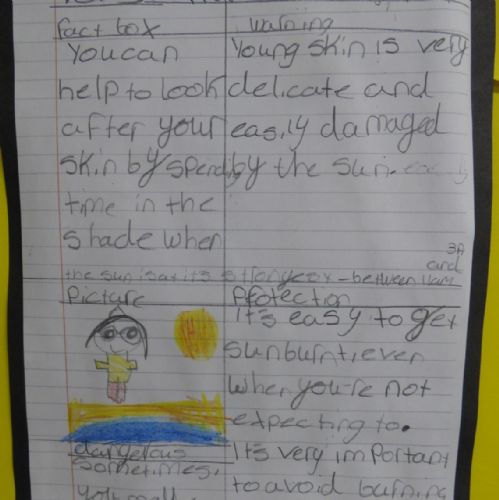 fact box
You can
help to look
after your
skin by spending
time in the
shade when
the sun is at its strongest - between 11am
and
3pm
warning
Young skin is very
delicate and
easily damaged
by the sun.
Picture
Protection
It's easy to get
sunburnt, even
when you're not
expecting to.
It's very important
to avoid burning
dangerous
Sometimes,
you